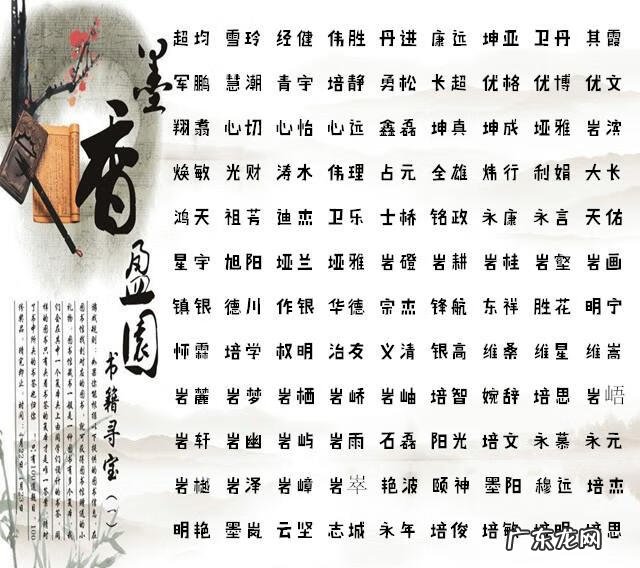 墨香盈園
书籍寻宝（1）
超均 雪玲 经健 伟胜 丹进 康远 坤亚 卫丹 其霞
军鹏 慧潮 青宇 培静 勇松 长超 优格 优博 优文
翔翥 心切 心怡 心远 鑫磊 坤真 坤成 垭雅 岩滨
焕敏 光财 涛水 伟理 占元 全雄 炜行 利娟 大长
鸿天 祖芳 迪杰 卫乐 士桥 铭政 永康 永言 天佑
星宇 旭阳 垭兰 垭雅 岩磴 岩耕 岩桂 岩壑 岩画
镇银 德川 作银 华德 宗杰 锋航 东祥 胜花 明宁
怀霖 培学 权明 治友 义清 银高 维桑 维星 维嵩
岩麓 岩梦 岩栖 岩峤 岩岫 培智 婉辞 培思 岩峿
岩轩 岩幽 岩屿 岩雨 石磊 阳光 培文 永慕 永元
岩樾 岩泽 岩嶂 岩崒 艳波 颐神 墨阳 穆远 培杰
明艳 墨岚 云坚 志城 永年 培俊 培敏 培明 培思
广东龙网